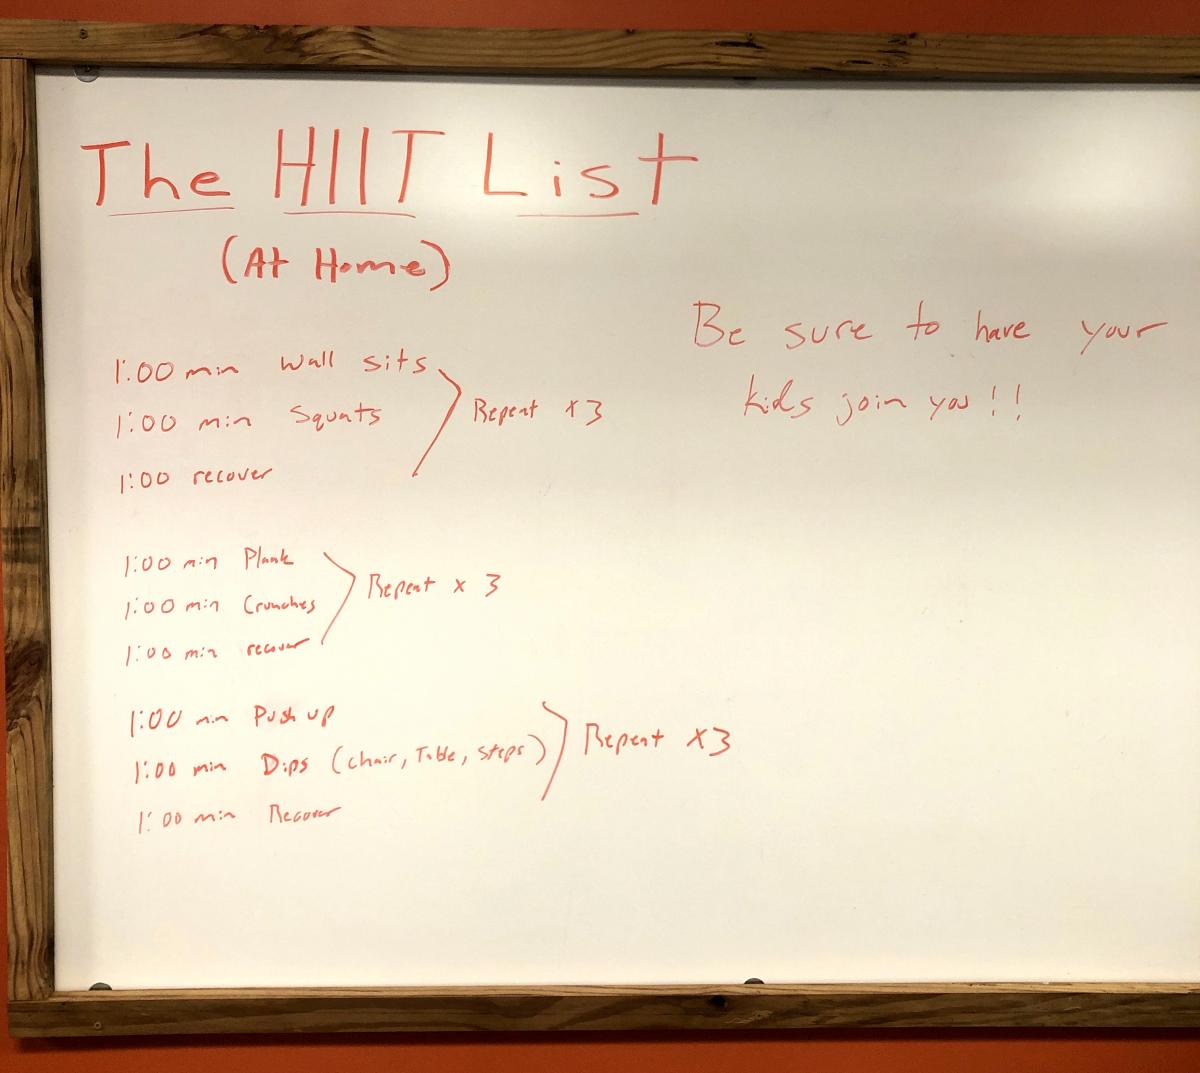 The HIIT List
(At Home)
Be sure to have your
kids join you!!
1:00 min Wall sits
1:00 min Squats
Repeat x3
1:00 recover
1:00 min Plank
1:00 min Crunches
Repeat x 3
1:00 min recover
1:00 min Push up
1:00 min Dips (chair, Table, Steps)
Repeat x3
1:00 min Recover